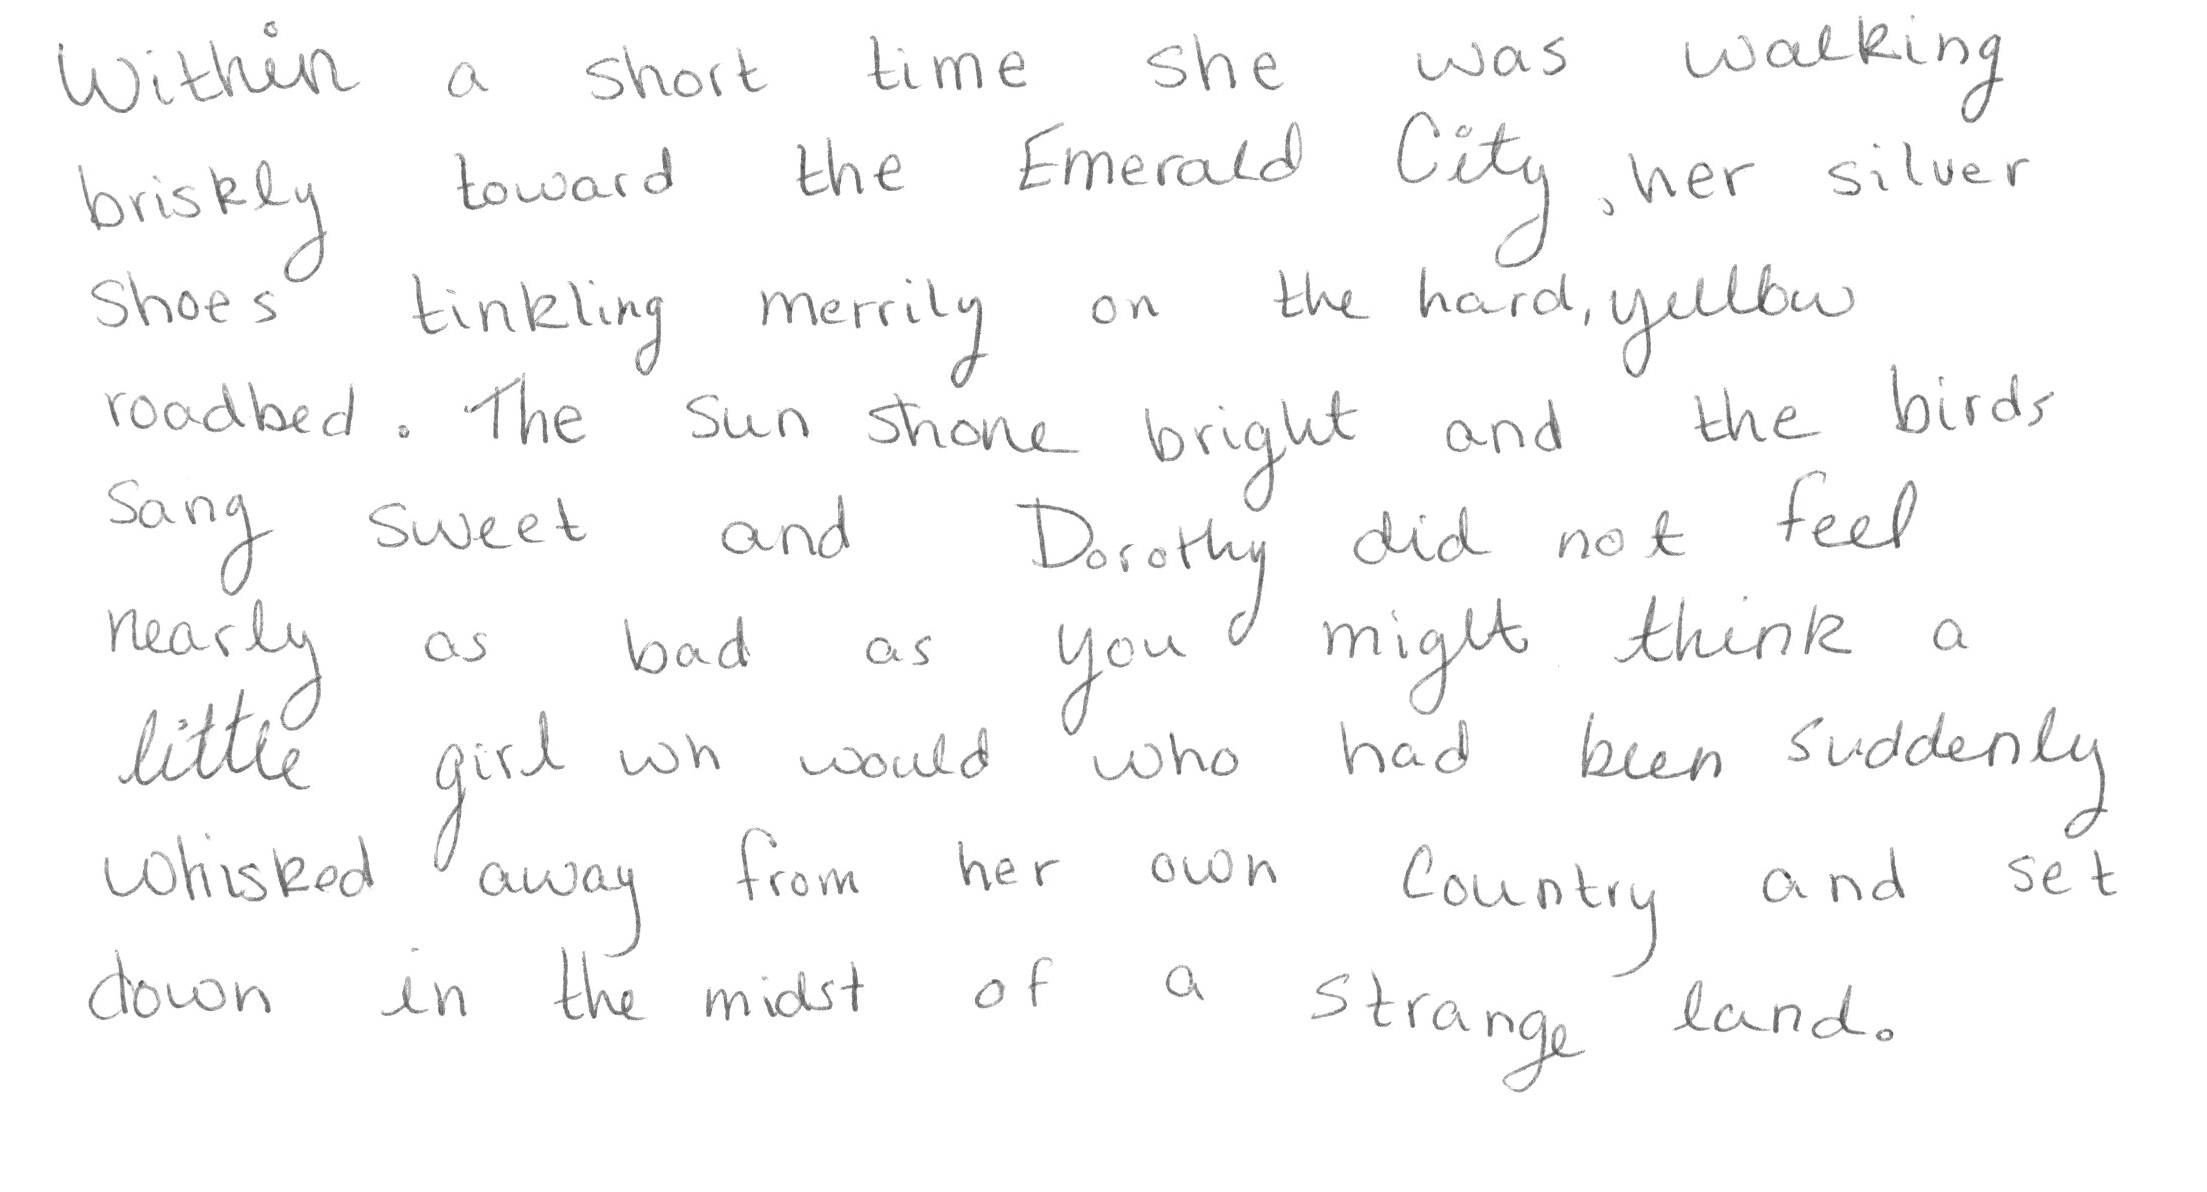 Within a short time she was walking
briskly toward the Emerald City, her silver
shoes tinkling merrily on the hard, yellow
roadbed. The sun shone bright and the birds
sang sweet and Dorothy did not feel
nearly as bad as you might think a
little girl wh would who had been suddenly
whisked away from her own country and set
down in the midst of a strange land.